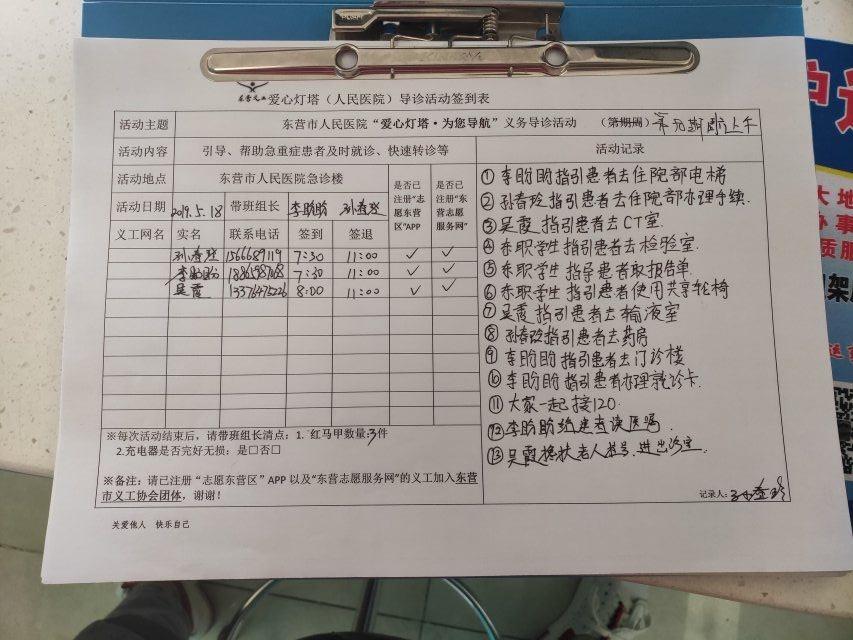 东营义工 爱心灯塔（人民医院）导诊活动签到表
活动主题 东营市人民医院“爱心灯塔·为您导航”义务导诊活动 （第期周）
活动内容 引导、帮助急重症患者及时就诊、快速转诊等 活动记录
活动地点 东营市人民医院急诊楼 是否已注册“志愿东营区”APP 是否已注册“东营志愿服务网”
活动日期 2019.5.18 带班组长 李盼盼
义工网名 实名 联系电话 签到 签退
1566689119 7:30 11:00 ✓ ✓
李盼盼 7:30 11:00 ✓ ✓
吴霞 13376475226 8:00 11:00 ✓ ✓
※每次活动结束后，请带班组长清点：1. 红马甲数量:3件
2.充电器是否完好无损：是□否□
※备注：请已注册“志愿东营区”APP以及“东营志愿服务网”的义工加入东营
市义工协会团体，谢谢！
① 李盼盼指引患者去住院部电梯
② 指引患者去住院部办理手续.
③ 吴霞指引患者去CT室.
④ 东职学生指引患者去检验室.
⑤ 东职学生指导患者取报告单.
⑥ 东职学生指引患者使用共享轮椅
⑦ 吴霞指引患者去输液室
⑧ 指引患者去药房
⑨ 李盼盼指引患者去门诊楼
⑩ 李盼盼指引患者办理就诊卡.
⑪ 大家一起接120.
⑫ 李盼盼给患者读医嘱.
⑬ 吴霞搀扶老人挂号,进出诊室.
记录人:
关爱他人 快乐自己